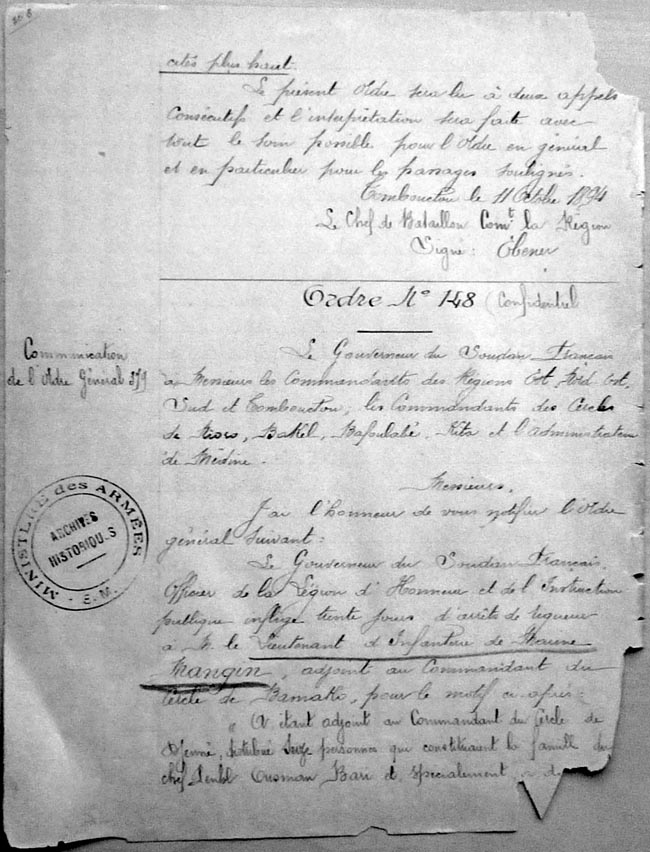 cités plus haut.
Le présent Ordre sera lu à deux appels
Consécutifs et l'interprétation sera faite avec
tout le soin possible pour l'Ordre en général
et en particulier pour les passages soulignés.
Tombouctou le 11 Octbre 1894
Le Chef de Bataillon Comt la Région
Signé: Ebener
Ordre No 148 (Confidentiel
Communication
de l'Ordre Général 379
Le Gouverneur du Soudan Français
à Messieurs les Commandants des Régions Est, Nord Est,
Sud et Tombouctou, les Commandants des Cercles
de Nioro, Bakel, Bafoulabé, Kita et l'administrateur
de Médine.
Messieurs,
J'ai l'honneur de vous notifier l'Ordre
général suivant:
Le Gouverneur du Soudan Français,
Officier de la Légion d'Honneur et de l'Instruction
publique inflige trente jours d'arrêts de rigueur
à M. le Lieutenant d'Infanterie de Marine
Mangin, adjoint au Commandant du
Cercle de Bamako, pour le motif ci-après:
" A étant adjoint au Commandant du Cercle de
Djenné, distribué seize personnes qui constituaient la famille du
chef Ousman Bari et spécialement
MINISTÈRE des ARMÉES
ARCHIVES
HISTORIQUES
E.M.